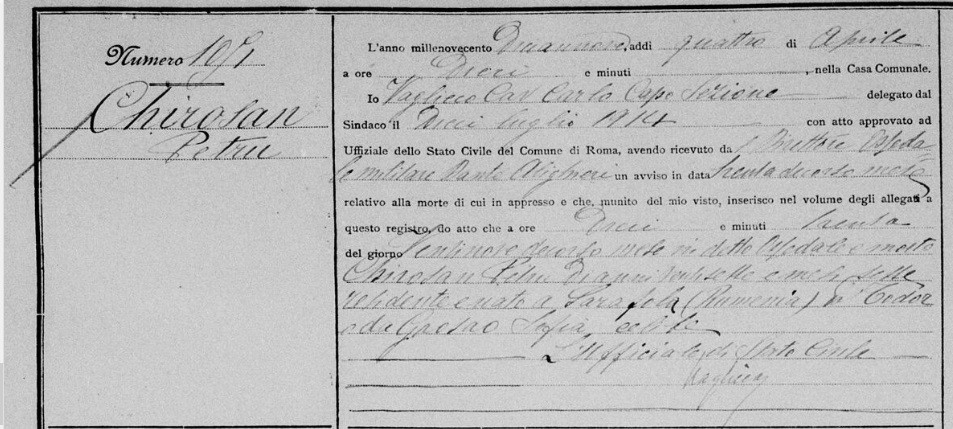 Numero 197
Chirosan
Petru
L'anno millenovecento Diciannove, addi quattro di Aprile
a ore Dieci e minuti , nella Casa Comunale.
Io Vagliceo Cav Carlo Capo Sezione delegato dal
Sindaco il Dieci luglio 1914 con atto approvato ad
Uffiziale dello Stato Civile del Comune di Roma, avendo ricevuto da l Direttore Ospeda=
le militare Dante Alighieri un avviso in data trenta decorso mese
relativo alla morte di cui in appresso e che, munito del mio visto, inserisco nel volume degli allegati a
questo registro, do atto che a ore Dieci e minuti trenta
del giorno Ventinove decorso mese in detto Ospedale è morto
Chirosan Petru D'anni ventisette e mesi sette
residente e nato a (Rumenia) di Todor
e da Sofia, celibe
L'Ufficiale di Stato Civile